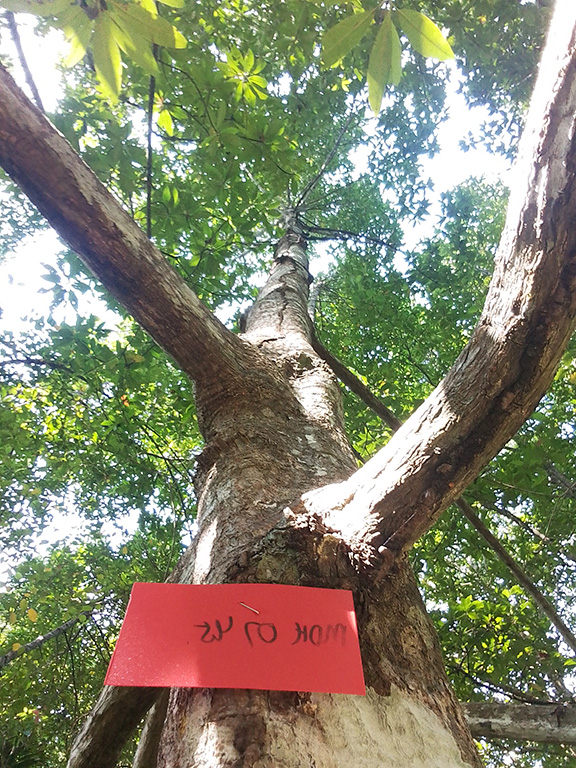 MDK 07 45